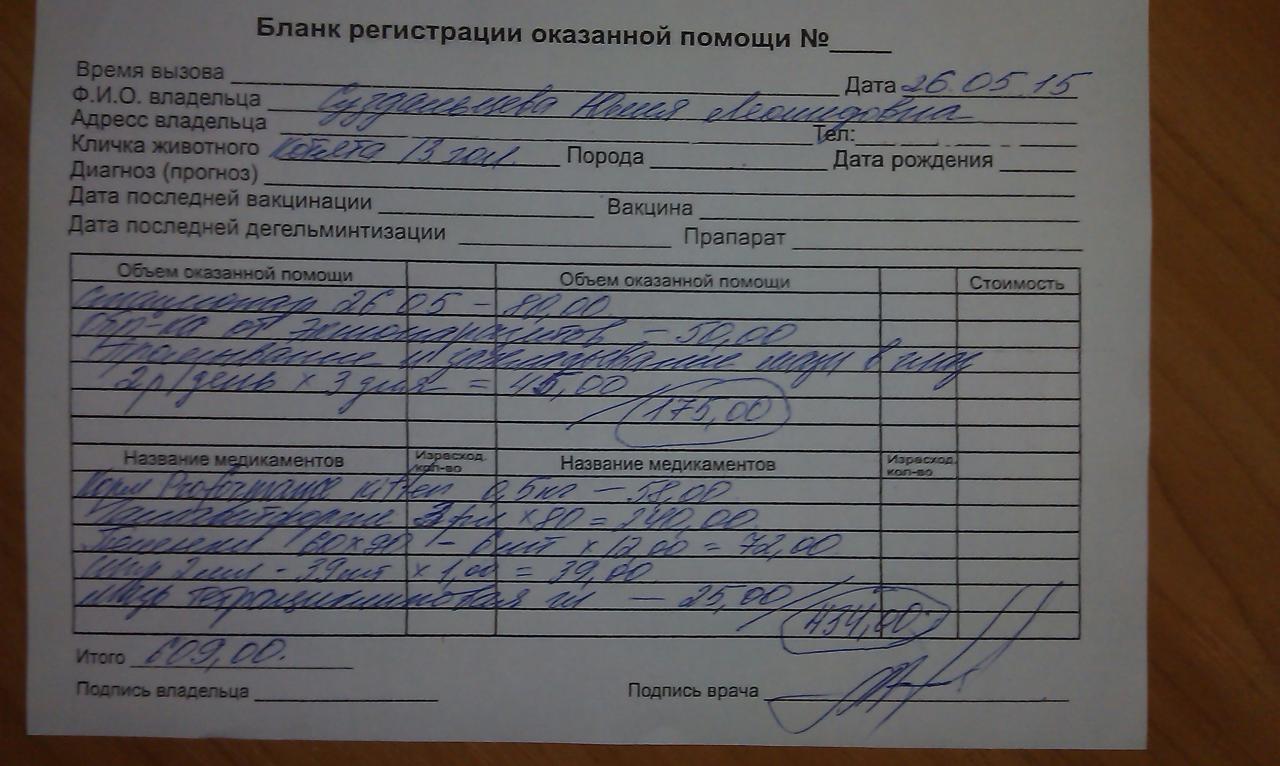 Бланк регистрации оказанной помощи №____
Время вызова Дата 26.05.15
Ф.И.О. владельца Суздальцева Юлия Леонидовна
Адресс владельца Тел:
Кличка животного Котята 13 гол Порода Дата рождения
Диагноз (прогноз)
Дата последней вакцинации Вакцина
Дата последней дегельминтизации Препарат
Объем оказанной помощи Объем оказанной помощи Стоимость
Стационар 26 05 - 80,00
Обр-ка от эктопаразитов - 50,00
Промывание и закладывание мази в глаз
2р/день х 3 дня = 45,00
175,00
Название медикаментов Израсход. кол-во Название медикаментов Израсход. кол-во
Корм Proformance Kitten 0,5кг - 58,00
3 х 80 = 240,00
Пеленки 60х90 - 6шт х 12,00 = 72,00
Шпр 2мл - 39шт х 1,00 = 39,00
Мазь тетрациклиновая гл - 25,00
434,00
Итого 609,00.
Подпись владельца Подпись врача